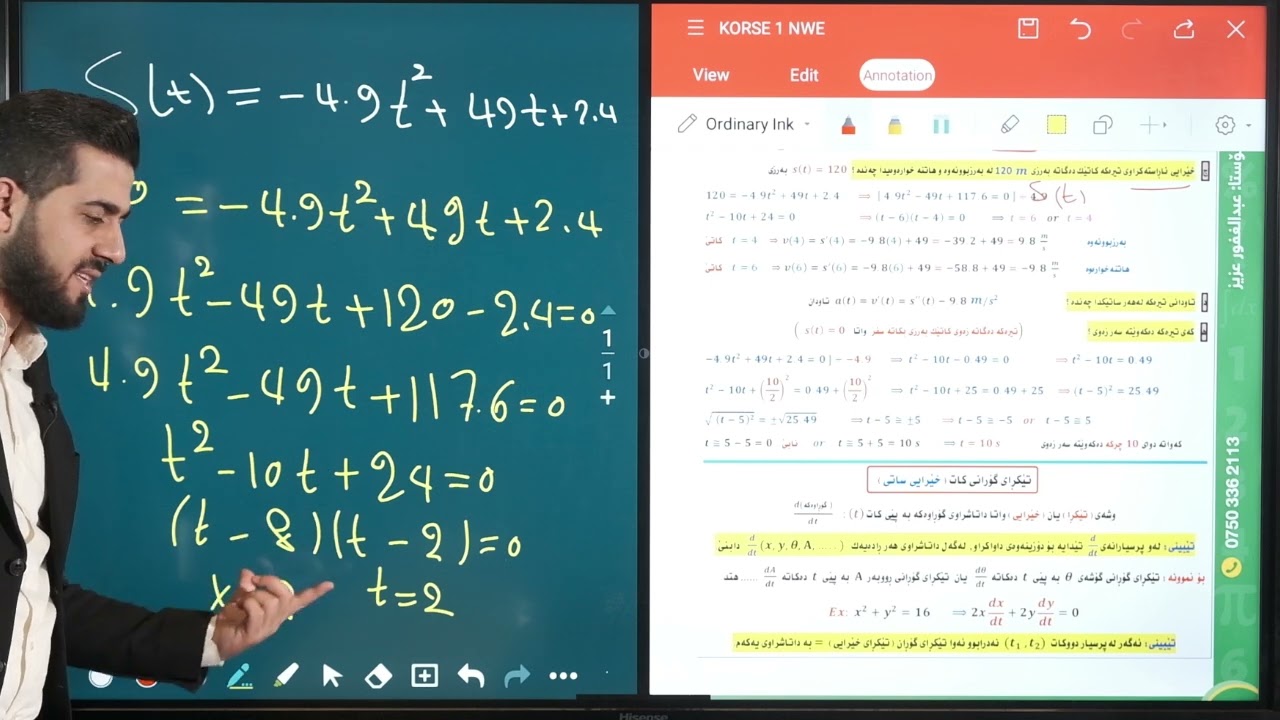 S(t) = -4.9t² + 49t + 2.4
= -4.9t² + 49t + 2.4
.9t² - 49t + 120 - 2.4 = 0
4.9t² - 49t + 117.6 = 0
t² - 10t + 24 = 0
(t - 8)(t - 2) = 0
t = 2
1
1
+
KORSE 1 NWE
View Edit Annotation
Ordinary Ink
خێرایی ئاراستەکراوی تیرەکە کاتێك دەگاتە بەرزی 120 m لە بەرزبوونەوە و هاتنە خوارەوەیدا چەندە ؟ s(t) = 120 بەرزی
S(t)
120 = -4.9t² + 49t + 2.4 ⟹ [4.9t² - 49t + 117.6 = 0]
t² - 10t + 24 = 0 ⟹ (t - 6)(t - 4) = 0 ⟹ t = 6 or t = 4
کاتێ t = 4 ⟹ v(4) = s'(4) = -9.8(4) + 49 = -39.2 + 49 = 9.8 m/s بەرزبوونەوە
کاتێ t = 6 ⟹ v(6) = s'(6) = -9.8(6) + 49 = -58.8 + 49 = -9.8 m/s هاتنە خوارەوە
تاودانی تیرەکە لەهەر ساتێکدا چەندە ؟ a(t) = v'(t) = s''(t) - 9.8 m/s² تاودان
کەی تیرەکە دەکەوێتە سەر زەوی ؟ ( تیرەکە دەگاتە زەوی کاتێك بەرزی بکاتە سفر واتا s(t) = 0 )
-4.9t² + 49t + 2.4 = 0] ÷ -4.9 ⟹ t² - 10t - 0.49 = 0 ⟹ t² - 10t = 0.49
t² - 10t + (10/2)² = 0.49 + (10/2)² ⟹ t² - 10t + 25 = 0.49 + 25 ⟹ (t - 5)² = 25.49
√(t - 5)² = ±√25.49 ⟹ t - 5 ≅ ±5 ⟹ t - 5 ≅ -5 or t - 5 ≅ 5
t ≅ 5 - 5 = 0 نابێ or t ≅ 5 + 5 = 10 s ⟹ t = 10 s کەواتە دوای 10 چرکە دەکەوێتە سەر زەوی
تێکڕای گۆڕانی کات ( خێرایی ساتی )
وشەی ( تێکڕا ) یان ( خێرایی ) واتا داتاشراوی گۆڕاوەکە بە پێی کات (t) : d(گۆڕاوەکە)/dt
تێبینی : لەو پرسیارانەی d/dt تێدایە بۆ دۆزینەوەی داواکراو، لەگەل داتاشراوی هەر ڕادەیەك d/dt (x, y, θ, A, .....) دابنێ
بۆ نموونە : تێکڕای گۆڕانی گۆشەی θ بە پێی t دەکاتە dθ/dt یان تێکڕای گۆڕانی ڕووبەر A بە پێی t دەکاتە dA/dt ...... هتد
Ex: x² + y² = 16 ⟹ 2x dx/dt + 2y dy/dt = 0
تێبینی : ئەگەر لە پرسیار دووکات (t₁ , t₂) ئەدرابوو ئەوا تێکڕای گۆڕان ( تێکڕای خێرایی ) = بە داتاشراوی یەکەم
مۆستا: عبدالغفور عزیز
0750 336 2113
Hisense